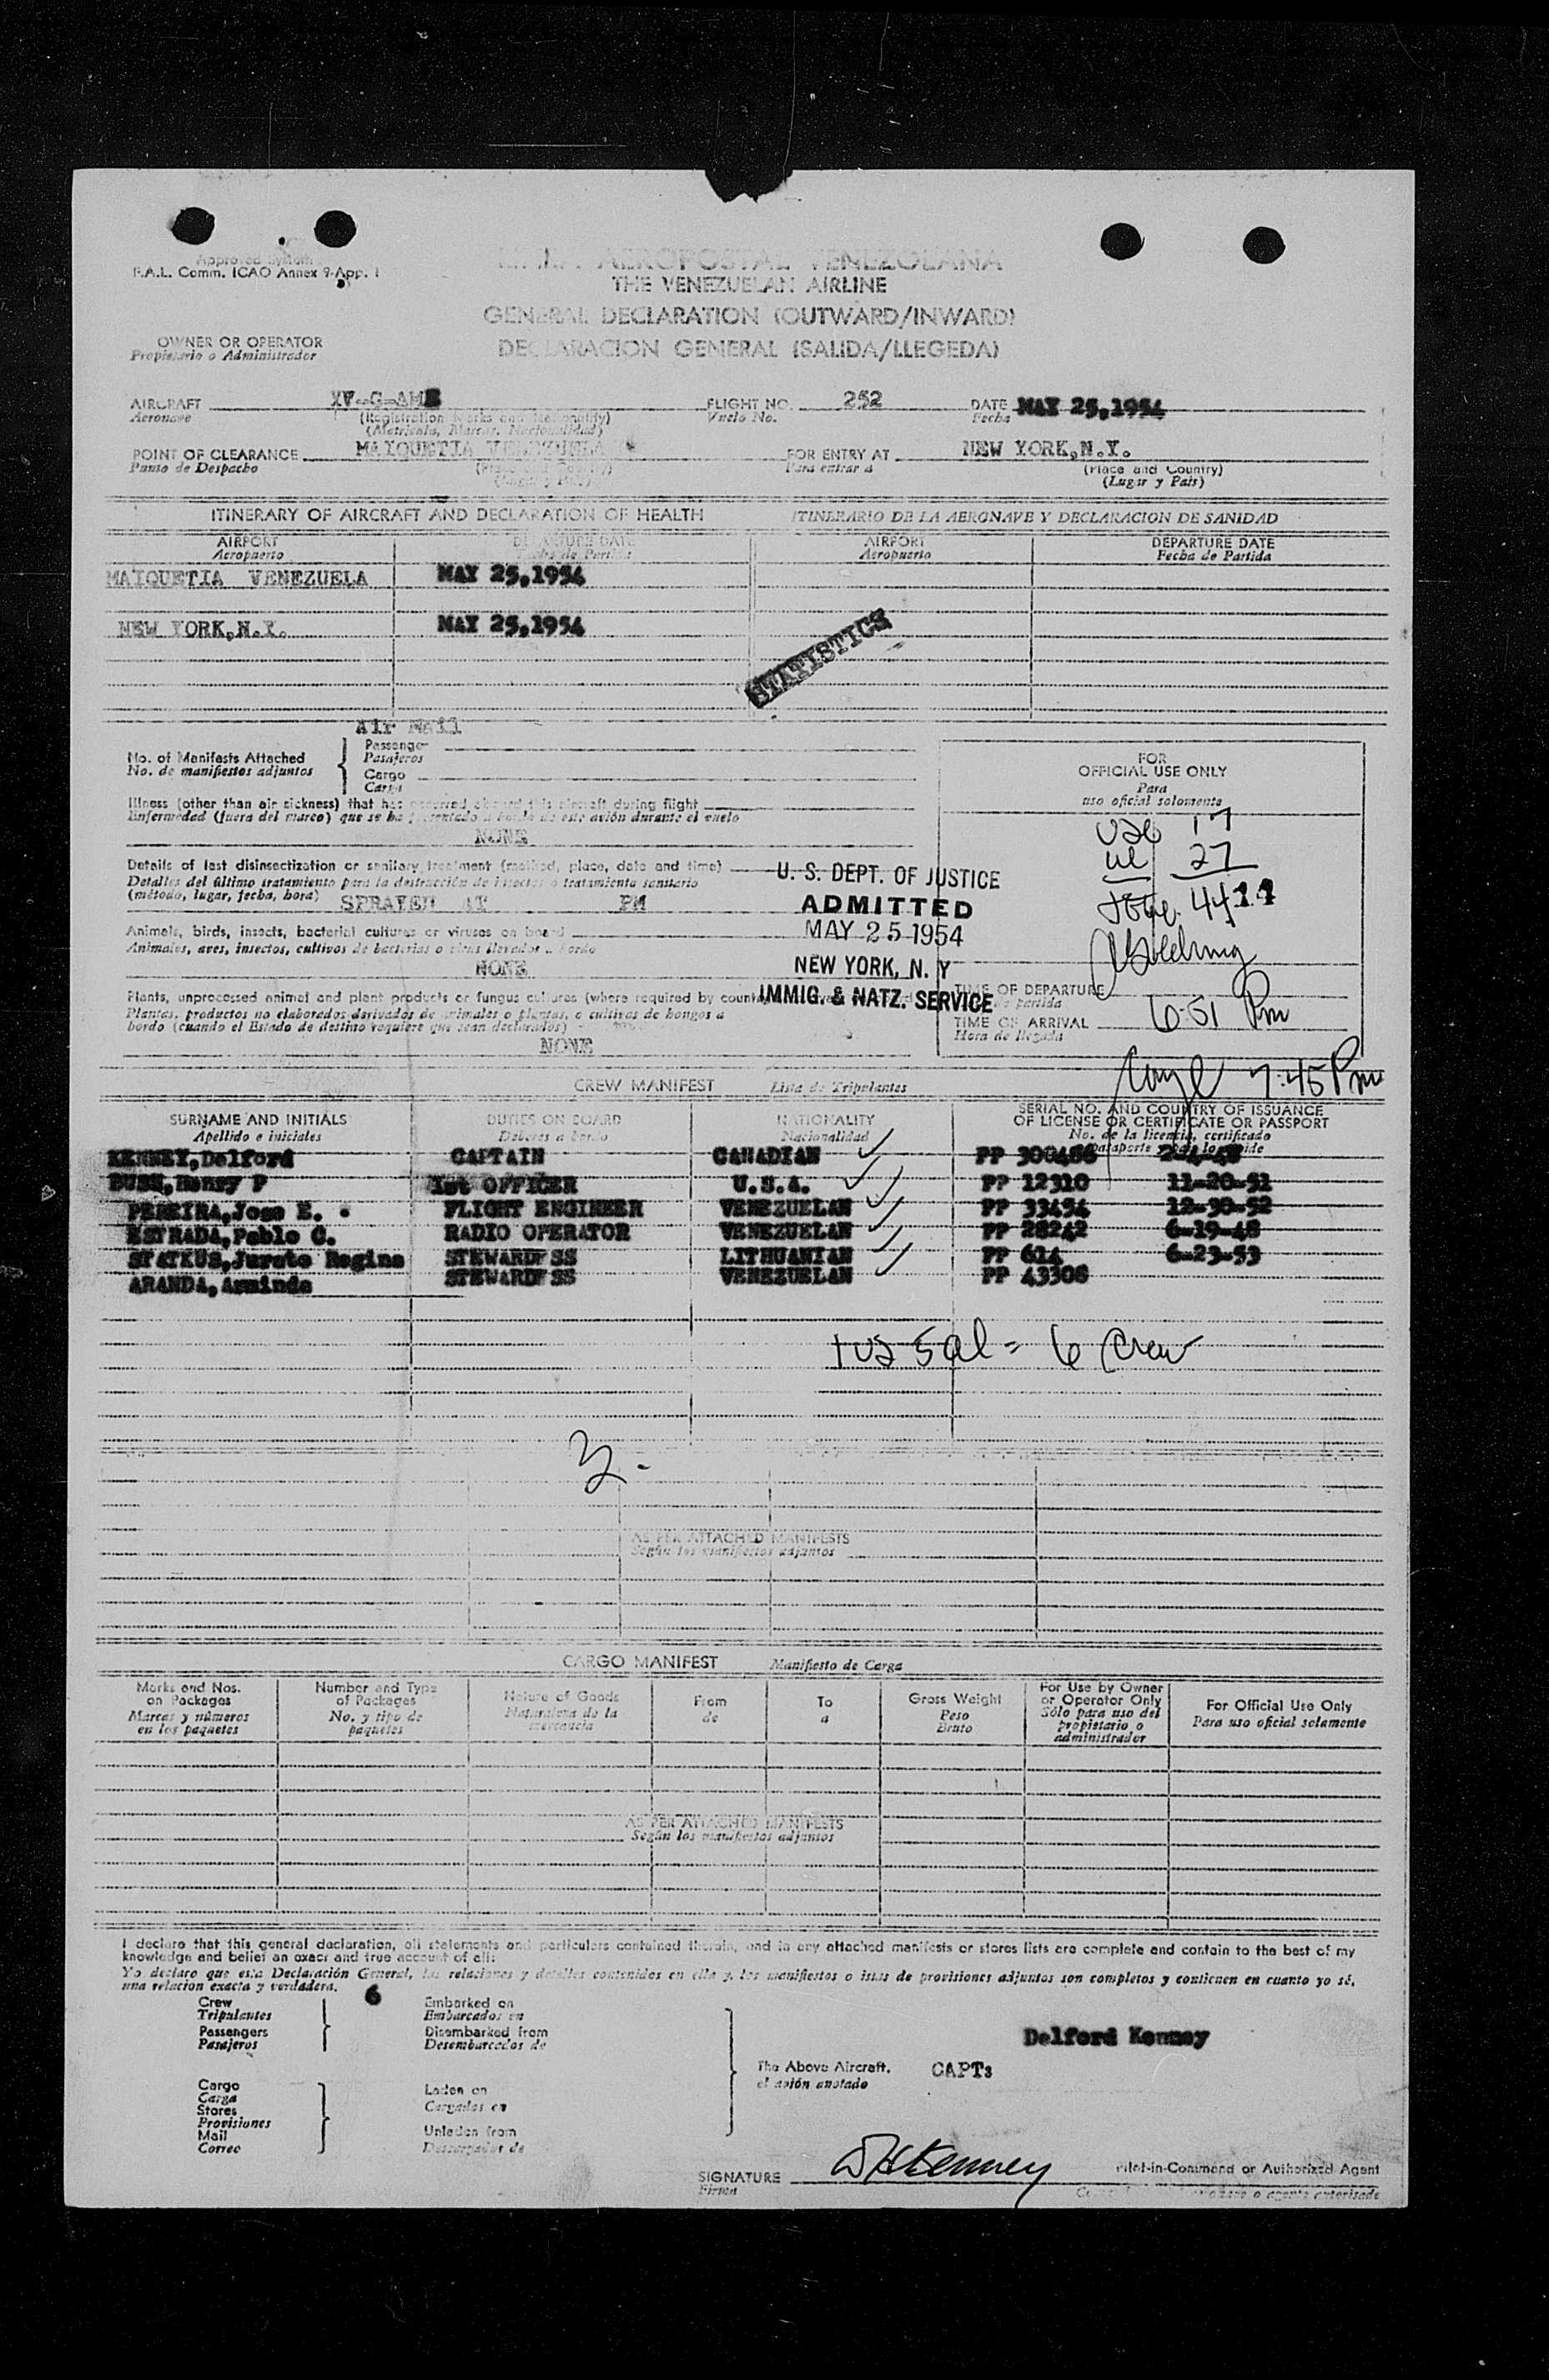 Approved System
F.A.L. Comm. ICAO Annex 9-App. 1
AEROPOSTAL VENEZOLANA
THE VENEZUELAN AIRLINE
GENERAL DECLARATION (OUTWARD/INWARD)
DECLARACION GENERAL (SALIDA/LLEGEDA)
OWNER OR OPERATOR
Propietario o Administrador
AIRCRAFT FLIGHT NO. 252 DATE MAY 25,1954
Aeronave (Registration Marks and Nationality) Vuelo No. Fecha
(Matricula, Marcas, Nacionalidad)
POINT OF CLEARANCE MAIQUETIA VENEZUELA FOR ENTRY AT NEW YORK,N.Y.
Punto de Despacho (Place and Country) Para entrar a (Place and Country)
(Lugar y Pais) (Lugar y Pais)
ITINERARY OF AIRCRAFT AND DECLARATION OF HEALTH ITINERARIO DE LA AERONAVE Y DECLARACION DE SANIDAD
AIRPORT DEPARTURE DATE AIRPORT DEPARTURE DATE
Aeropuerto Fecha de Partida Aeropuerto Fecha de Partida
MAIQUETIA VENEZUELA MAY 25,1954
NEW YORK,N.Y. MAY 25,1954
STATISTICS
Air Mail
No. of Manifests Attached Passenger
No. de manifiestos adjuntos Pasajeros
Cargo
Carga
FOR
OFFICIAL USE ONLY
Para
uso oficial solamente
17
27
44 14
Illness (other than air sickness) that has occurred aboard this aircraft during flight
Enfermedad (fuera del mareo) que se ha presentado a bordo de este avión durante el vuelo
NONE
Details of last disinsectization or sanitary treatment (method, place, date and time)
Detalles del último tratamiento para la destrucción de insectos o tratamiento sanitario
(método, lugar, fecha, hora) SPRAYED AT PM
U. S. DEPT. OF JUSTICE
ADMITTED
MAY 25 1954
NEW YORK, N. Y
IMMIG. & NATZ. SERVICE
Animals, birds, insects, bacterial cultures or viruses on board
Animales, aves, insectos, cultivos de bacterias o virus llevados a bordo
NONE
Plants, unprocessed animal and plant products or fungus cultures (where required by
Plantas, productos no elaborados derivados de animales o plantas, o cultivos de hongos a
bordo (cuando el Estado de destino requiere que sean declarados)
NONE
TIME OF DEPARTURE
TIME OF ARRIVAL 6:51 Pm
Hora de llegada
7:45 Pm
CREW MANIFEST Lista de Tripulantes
SURNAME AND INITIALS DUTIES ON BOARD NATIONALITY SERIAL NO. AND COUNTRY OF ISSUANCE
OF LICENSE OR CERTIFICATE OR PASSPORT
Apellido e iniciales Deberes a bordo Nacionalidad No. de la licencia, certificado
KENNEY,Delford CAPTAIN CANADIAN PP 300486
BUSH,Henry P 1st OFFICER U.S.A. PP 12310 11-20-51
PEREIRA,Jose E. FLIGHT ENGINEER VENEZUELAN PP 33454 12-30-52
ESTRADA,Pablo C. RADIO OPERATOR VENEZUELAN PP 28242 6-19-48
STATKUS,Jurate Regina STEWARDESS LITHUANIAN PP 614 6-23-53
ARANDA,Arminda STEWARDESS VENEZUELAN PP 43306
1 US 5 al = 6 Crew
AS PER ATTACHED MANIFESTS
Según los manifiestos adjuntos
CARGO MANIFEST Manifiesto de Carga
Marks and Nos. on Packages Number and Type of Packages Nature of Goods From To Gross Weight For Use by Owner or Operator Only For Official Use Only
Marcas y números en los paquetes No. y tipo de paquetes Naturaleza de la mercancia de a Peso Bruto Sólo para uso del propietario o administrador Para uso oficial solamente
AS PER ATTACHED MANIFESTS
Según los manifiestos adjuntos
I declare that this general declaration, all statements and particulars contained therein, and in any attached manifests or stores lists are complete and contain to the best of my
knowledge and belief an exact and true account of all:
Yo declaro que esta Declaración General, las relaciones y detalles contenidos en ella y los manifiestos o istas de provisiones adjuntos son completos y contienen en cuanto yo sé,
una relacion exacta y verdadera.
Crew 6 Embarked on
Tripulantes Embarcados en
Passengers Disembarked from
Pasajeros Desembarcados de
Delford Kenney
The Above Aircraft. CAPT:
el avión anotado
Cargo Laden on
Carga Cargados en
Stores
Provisiones
Mail Unladen from
Correo Descargados de
SIGNATURE Kenney Pilot-in-Command or Authorized Agent
Firma